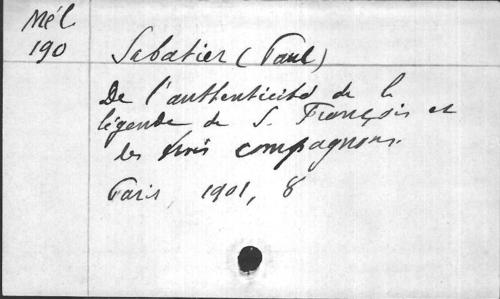 Mél
190
Sabatier (Paul)
De l'authenticité de la
légende de S. François et
des trois compagnons.
Paris 1901, 8